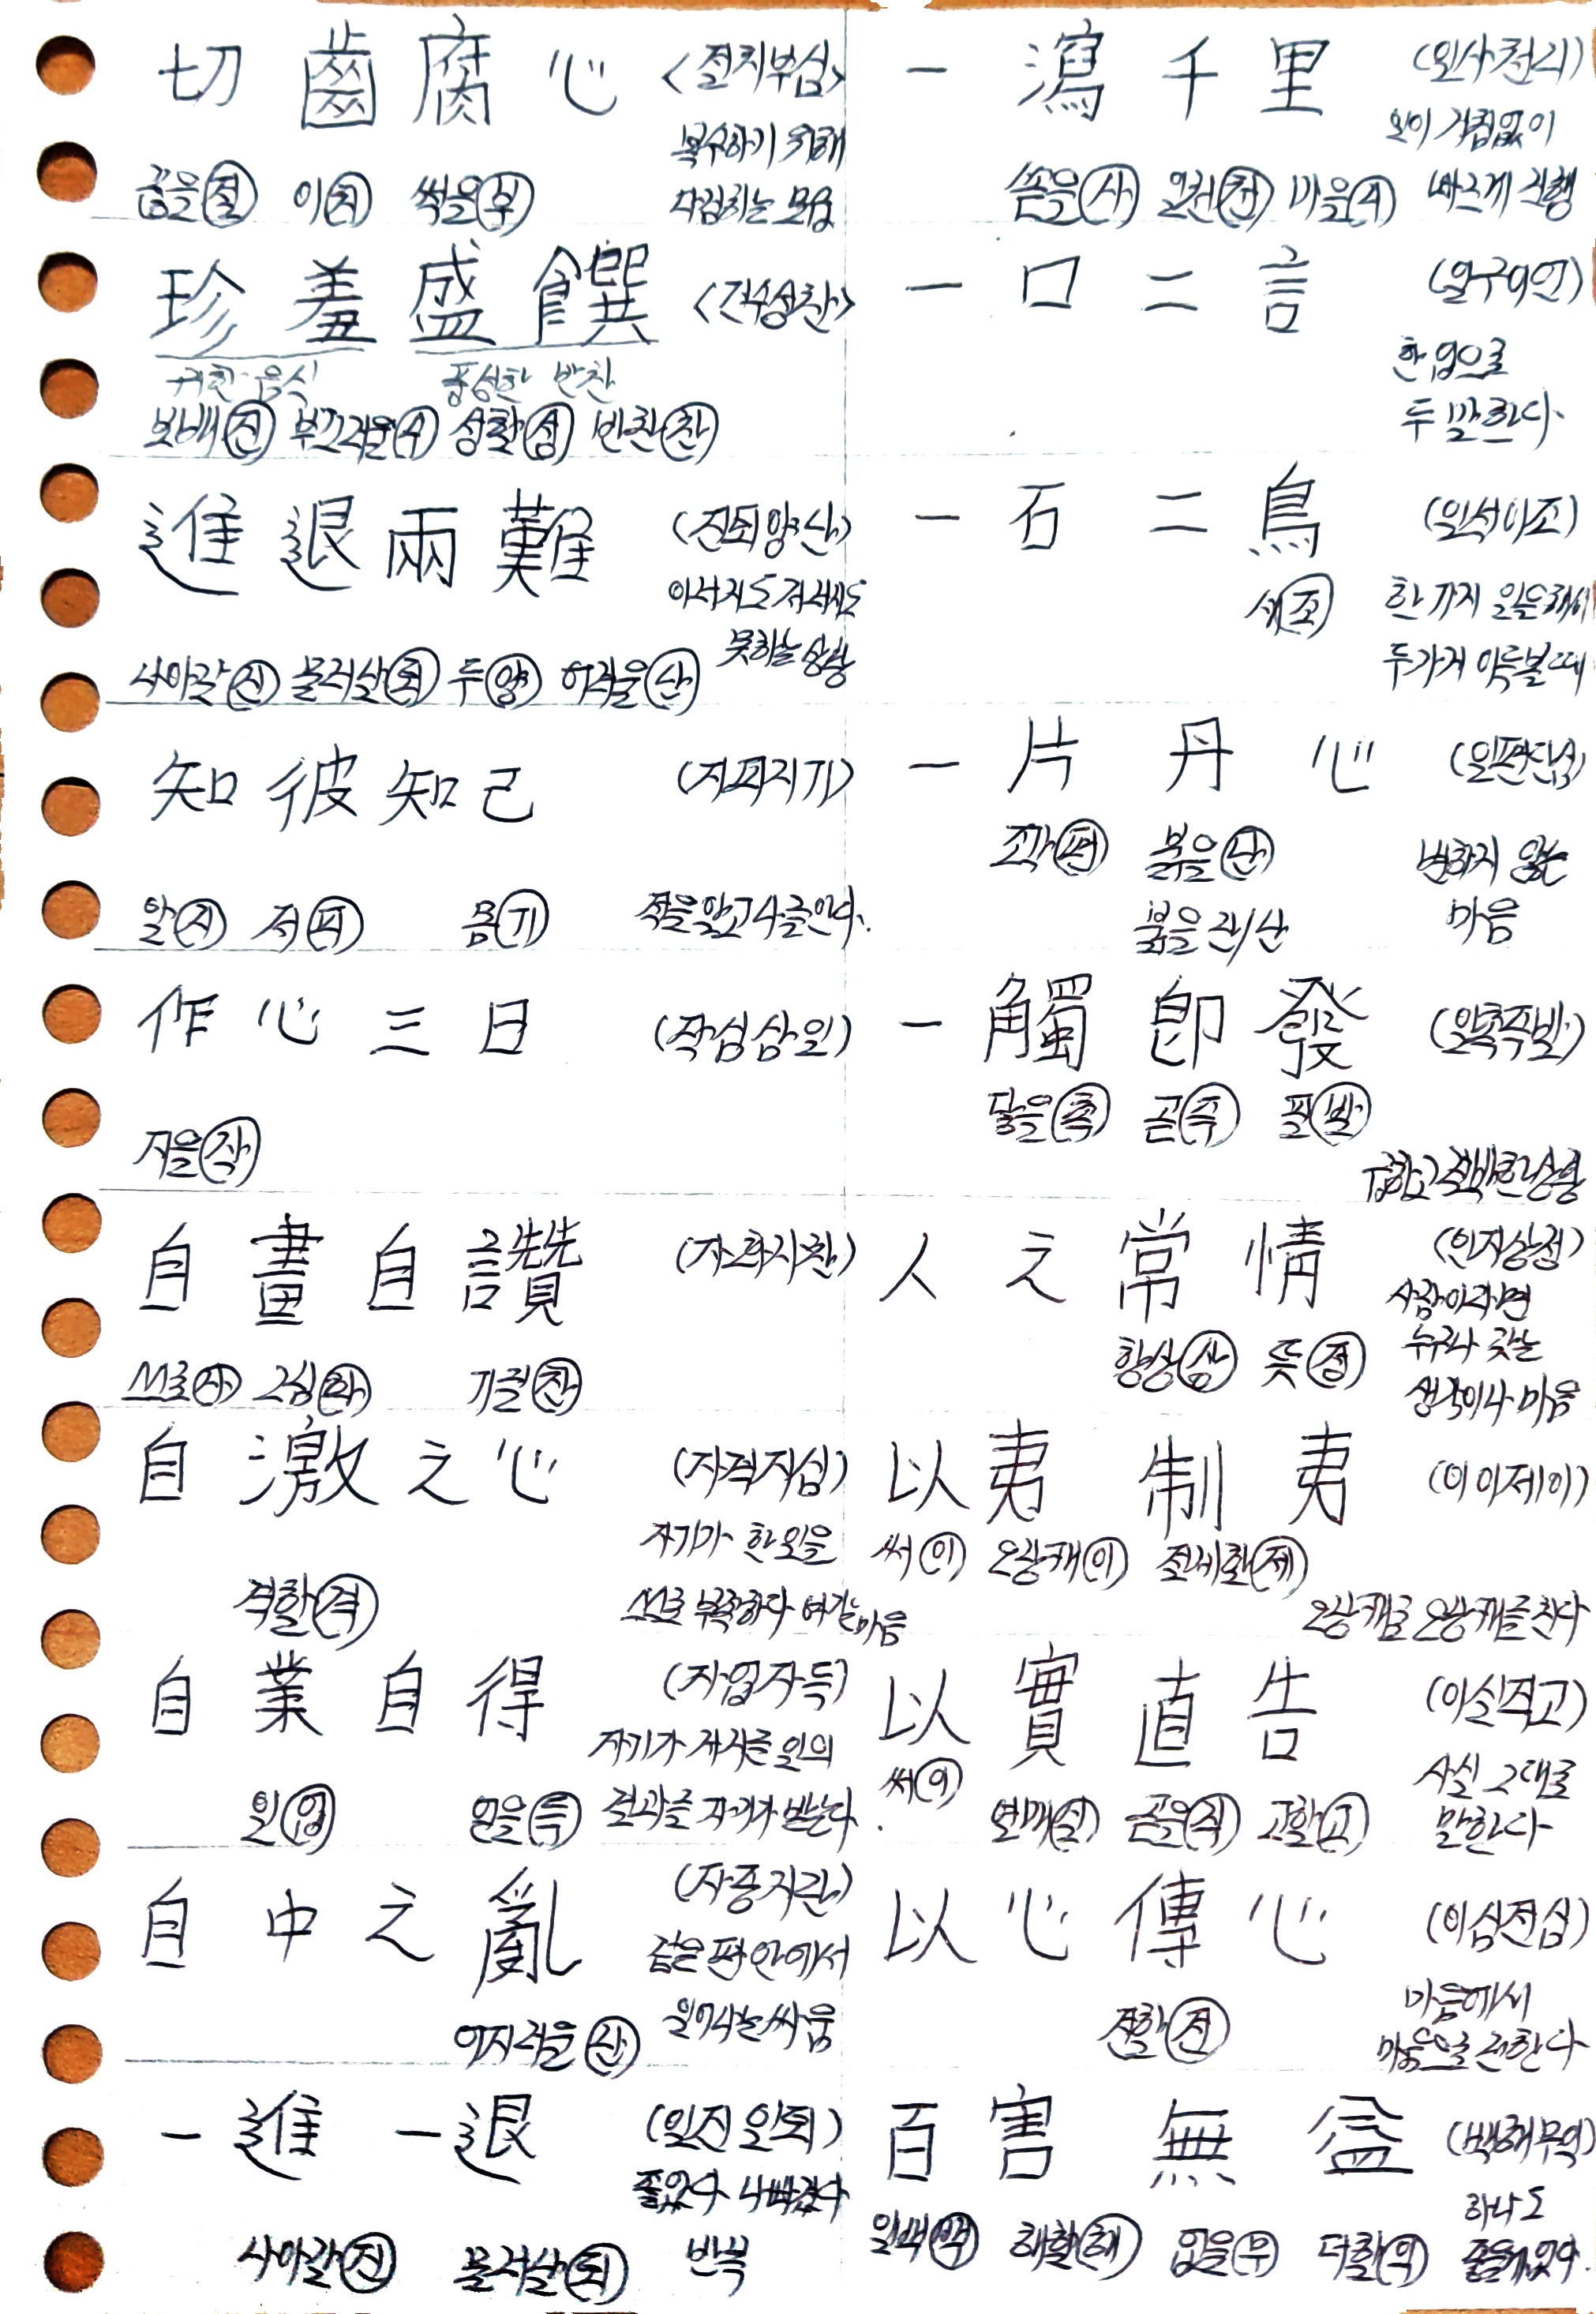 切齒腐心 <절치부심>
복수하기 위해
끊을(절) 이(치) 썩을(부)
다짐하는 모습
珍羞盛饌 <진수성찬>
귀한 음식 풍성한 반찬
보배(진) 부끄러울(수) 성할(성) 반찬(찬)
進退兩難 (진퇴양난)
이러지도 저러지도
못하는 상황
나아갈(진) 물러날(퇴) 두(양) 어려울(난)
知彼知己 (지피지기)
알(지) 저(피) 몸(기) 적을 알고 나를 안다.
作心三日 (작심삼일)
지을(작)
自畫自讚 (자화자찬)
스스로(자) 그림(화) 기릴(찬)
自激之心 (자격지심)
자기가 한 일을
격할(격) 스스로 부족하다 여기는 마음
自業自得 (자업자득)
자기가 저지른 일의
일(업) 얻을(득) 결과를 자기가 받는다.
自中之亂 (자중지란)
같은 편 안에서
어지러울(란) 일어나는 싸움
一進一退 (일진일퇴)
좋았다 나빠졌다
나아갈(진) 물러날(퇴) 반복
一瀉千里 (일사천리)
일이 거침없이
쏟을(사) 일천(천) 마을(리) 빠르게 진행
一口二言 (일구이언)
한 입으로
두 말 한다.
一石二鳥 (일석이조)
새(조) 한 가지 일을 해서
두가지 이득볼 때
一片丹心 (일편단심)
조각(편) 붉을(단) 변하지 않는
붉을 란/단 마음
一觸卽發 (일촉즉발)
닿을(촉) 곧(즉) 필(발)
급하고 절박한 상황
人之常情 (인지상정)
사람이라면
항상(상) 뜻(정) 누구나 갖는
생각이나 마음
以夷制夷 (이이제이)
써(이) 오랑캐(이) 절제할(제)
오랑캐로 오랑캐를 친다
以實直告 (이실직고)
써(이) 사실 그대로
열매(실) 곧을(직) 고할(고) 말한다
以心傳心 (이심전심)
마음에서
전할(전) 마음으로 전한다
百害無益 (백해무익)
하나도
일백(백) 해할(해) 없을(무) 더할(익) 좋을게 없다.